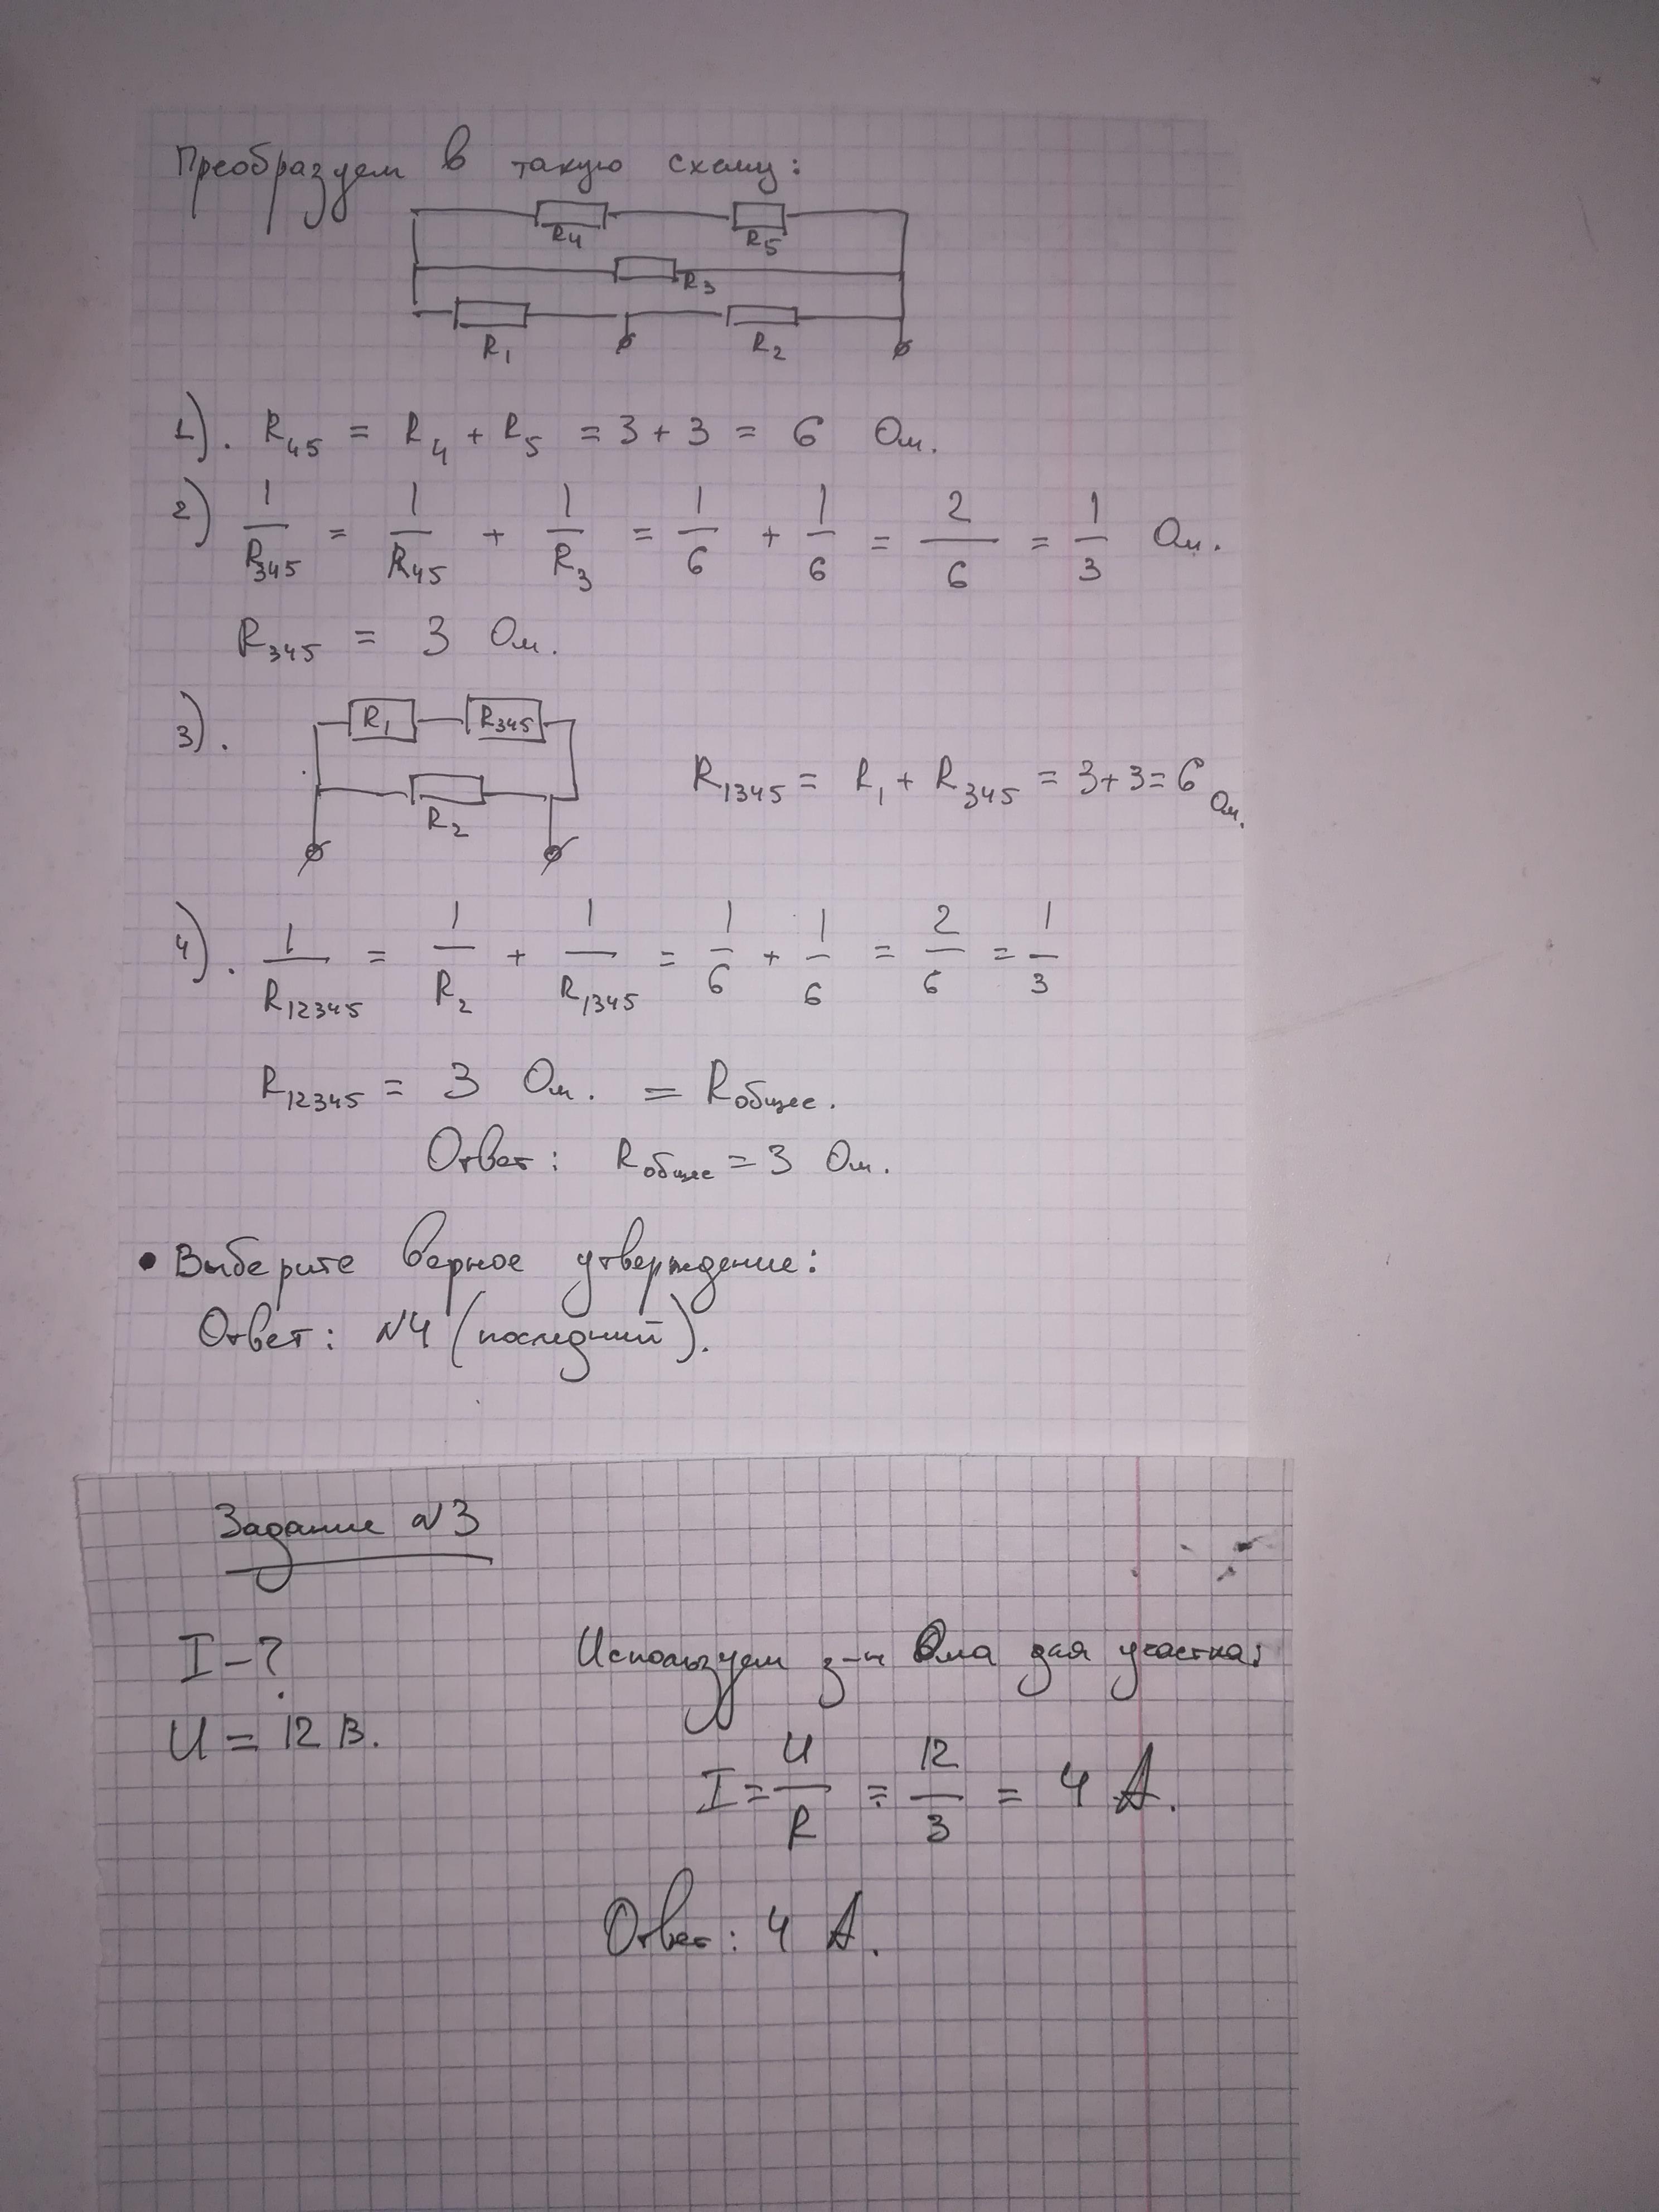 Преобразуем в такую схему:
R4 R5
R3
R1 R2
1). R45 = R4 + R5 = 3 + 3 = 6 Ом.
2) 1/R345 = 1/R45 + 1/R3 = 1/6 + 1/6 = 2/6 = 1/3 Ом.
R345 = 3 Ом.
3). R1 R345
R1345 = R1 + R345 = 3 + 3 = 6 Ом.
R2
4). 1/R12345 = 1/R2 + 1/R1345 = 1/6 + 1/6 = 2/6 = 1/3
R12345 = 3 Ом. = Rобщее.
Ответ: Rобщее = 3 Ом.
• Выберите верное утверждение:
Ответ: №4 (последний).
Задание №3
I - ?
Используем з-н Ома для участка:
U = 12 В.
I = U/R = 12/3 = 4 А.
Ответ: 4 А.